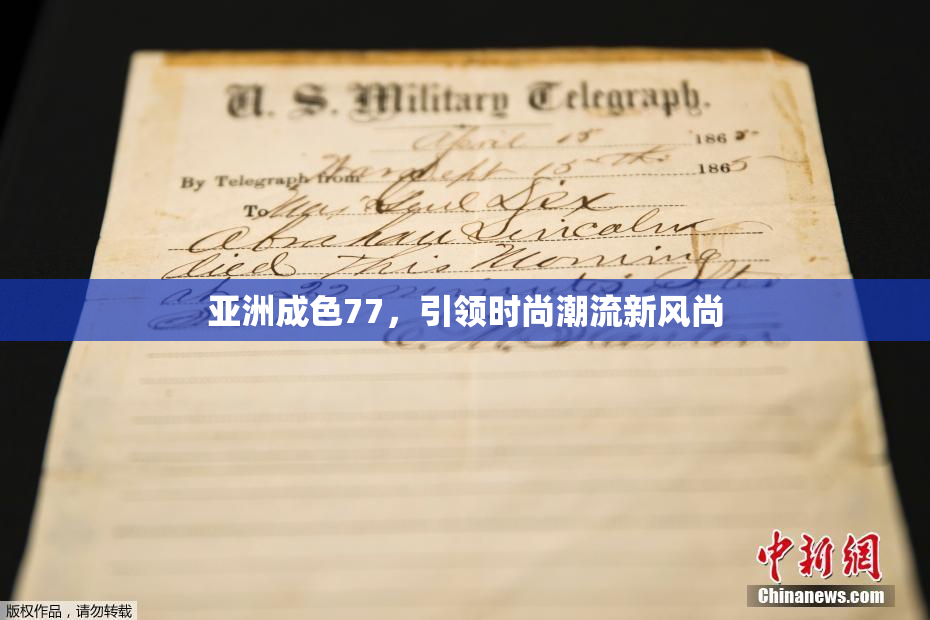 U. S. Military Telegraph.
April 15 1865
By Telegraph from War Dept 15th 1865
To Maj Genl Dix
Abraham Lincoln
died This Morning
at 22 minutes after
亚洲成色77，引领时尚潮流新风尚
E. M. Stanton
中新网
Chinanews.com
版权作品，请勿转载